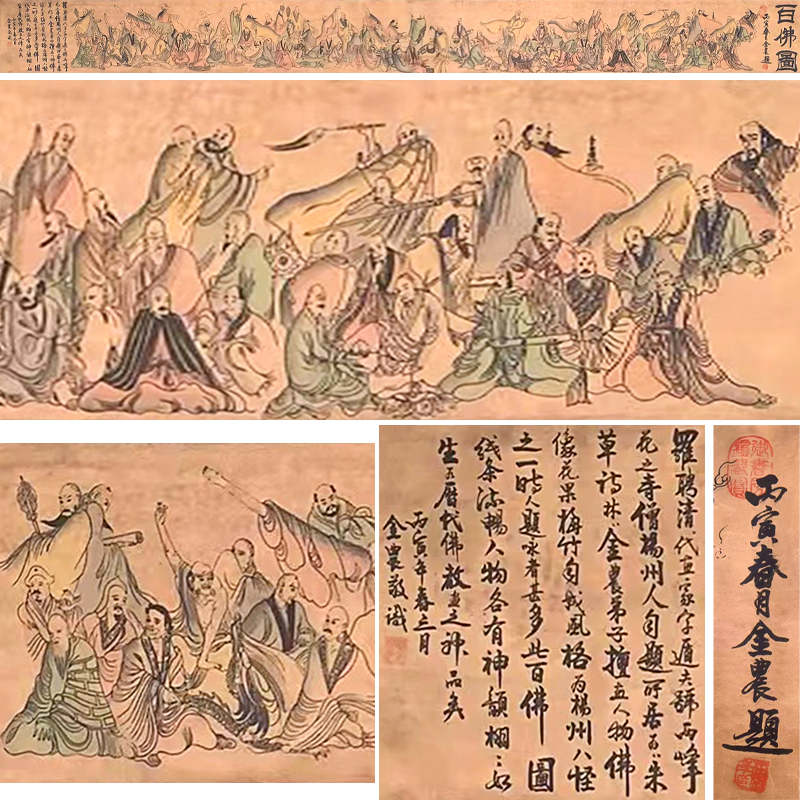 百佛圖
丙寅春月金農題
羅聘清代画家字遁夫號兩峰
花之寺僧楊州人自題所居為朱
草詩林金農弟子擅画人物佛
像花果梅竹自成風格為楊州八怪
之一時人題咏者甚多此百佛圖
线条流暢人物各有神韻栩々如
生為歷代佛教畫之神品矣
丙寅年春三月
金農敬識
丙寅春月金農題